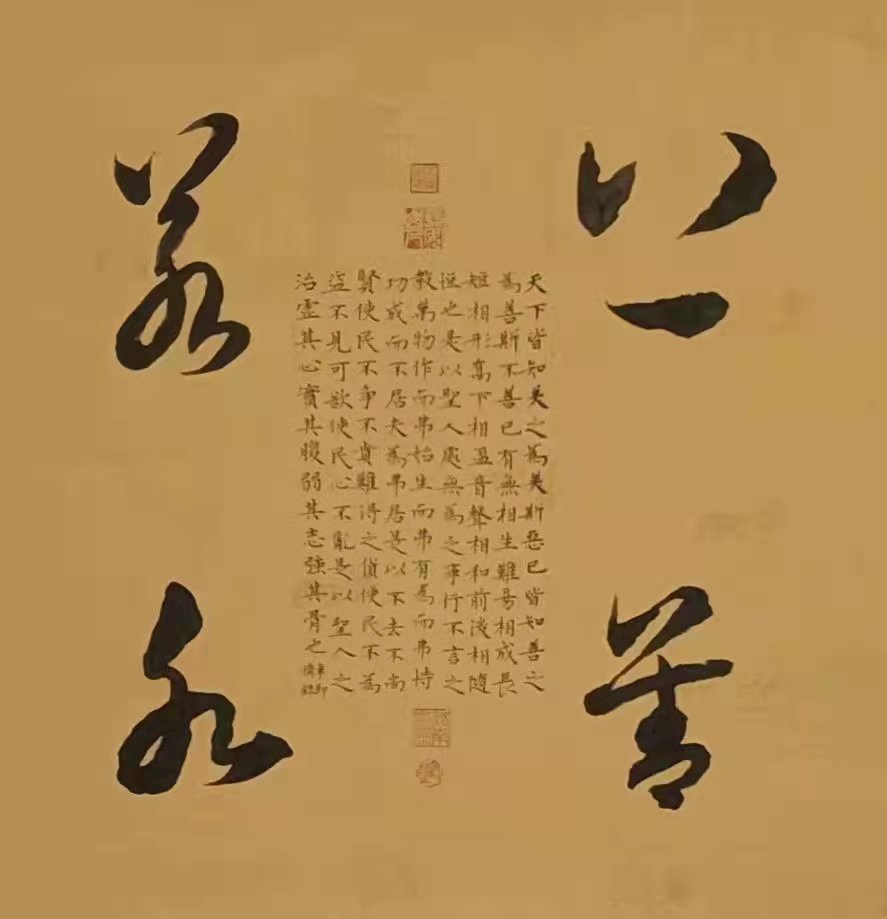 上善
若水
天下皆知美之為美斯惡已皆知善之
為善斯不善已有無相生難易相成長
短相形高下相盈音聲相和前後相隨
恒也是以聖人處無為之事行不言之
教萬物作而弗始生而弗有為而弗恃
功成而不居夫為弗居是以不去不尚
賢使民不爭不貴難得之貨使民不為
盜不見可欲使民心不亂是以聖人之
治虛其心實其腹弱其志強其骨